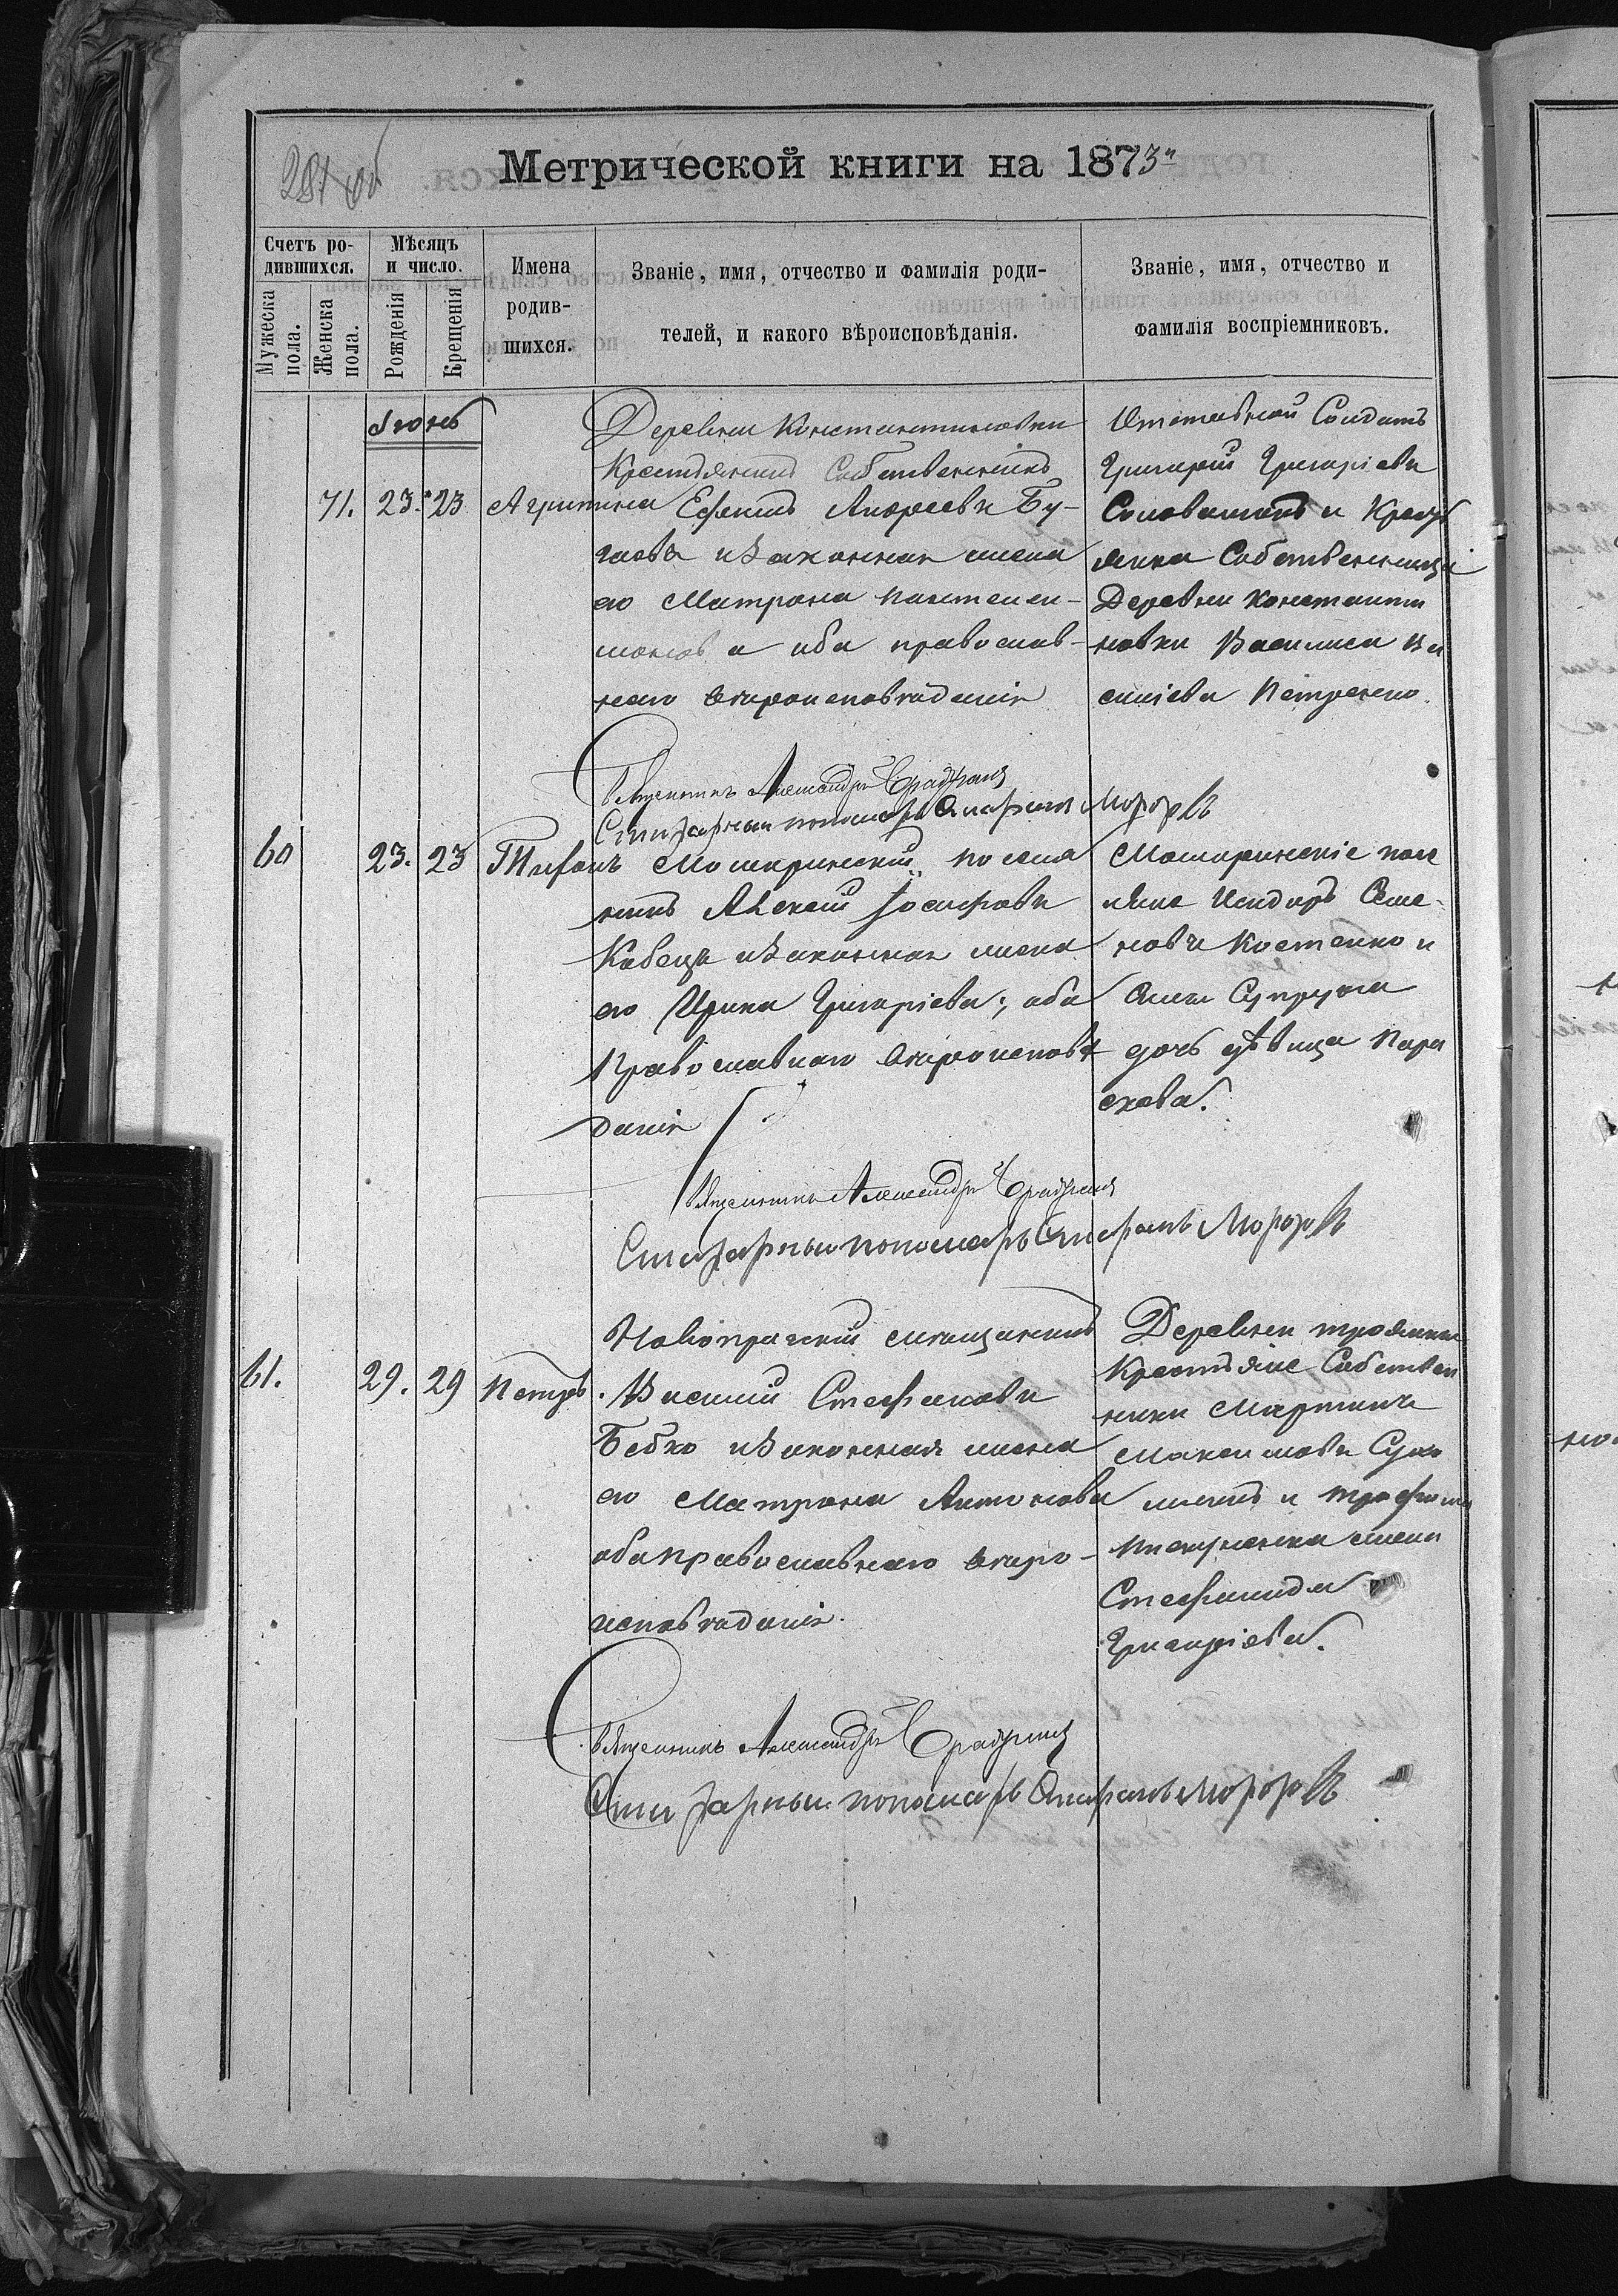 281 об
Метрической книги на 1873 г.
Счетъ ро-
дившихся.
Мужеска
пола.
Женска
пола.
Мѣсяцъ
и число.
Рожденія
Крещенія
Имена
родив-
шихся.
Званіе, имя, отчество и фамилія роди-
телей, и какого вѣроисповѣданія.
Званіе, имя, отчество и
фамилія воспріемниковъ.
Іюнь
71. 23. 23 Агрипина
Деревни Константиновки
Крестьянинъ Собственникъ
Ефимъ Андреевъ Бу-
гаевъ и законная жена
его Матрона Пантелеи-
монова оба православ-
наго вѣроисповѣданія
Отставной Солдатъ
Григорій Григоріевъ
и Крестья
янка Собственница
Деревни Константи
новки Василиса Ва
силіева Петренко.
Священникъ Александръ
пономарь Морозовъ
60 23. 23 Тифонъ
поселя
нинъ Алексій Іосифовъ
Кобецъ и законная жена
его Ирина Григоріева; оба
Православнаго вѣроисповѣ
данія
посе
ляне Исидоръ Семе-
новъ Костенко и
дочь дѣвица Пара
скева.
Священникъ Александръ
пономарь Морозовъ
61. 29. 29 Петръ.
Новопражскій мѣщанинъ
Василій Стефановъ
Бебко и законная жена
его Матрона Антонова
оба православнаго вѣро-
исповѣданія.
Деревни Троянки
Крестьяне Собствен
ники Мартинъ
Максимовъ
и Трофима
жена
Стефанида
Григоріева.
Священникъ Александръ
пономарь Морозовъ